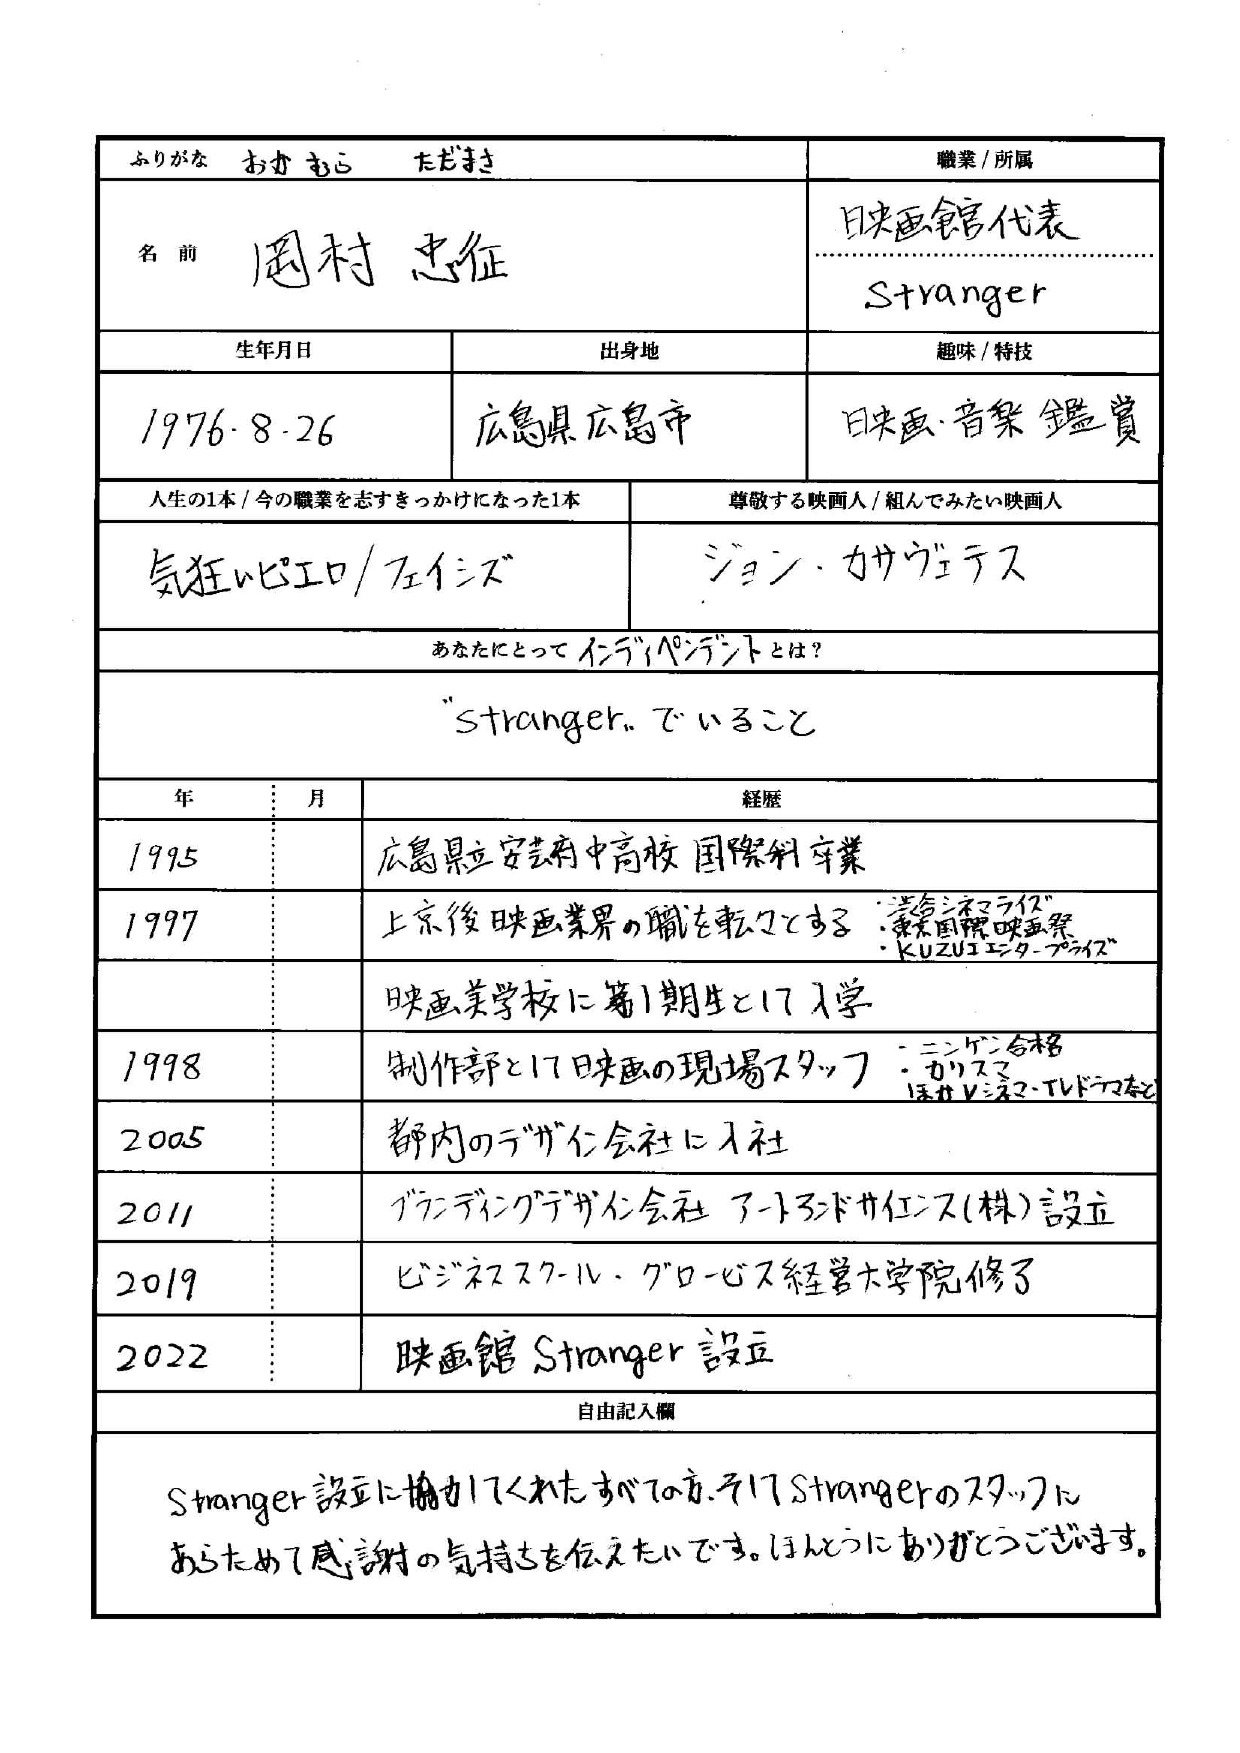 ふりがな おかむら ただまさ
職業 / 所属
名 前 岡村 忠征
映画館代表
Stranger
生年月日
出身地
趣味 / 特技
1976・8・26
広島県広島市
映画・音楽 鑑賞
人生の1本 / 今の職業を志すきっかけになった1本
尊敬する映画人 / 組んでみたい映画人
気狂いピエロ/フェイシズ
ジョン・カサヴェテス
あなたにとって インディペンデント とは?
"Stranger" でいること
年 月 経歴
1995 広島県立安芸府中高校 国際科 卒業
1997 上京後 映画業界の職を転々とする
・渋谷シネマライズ
・東京国際映画祭
・KUZUIエンタープライズ
映画美学校に第1期生として入学
1998 制作部として映画の現場スタッフ
・ニンゲン合格
・カリスマ
ほかVシネマ・TVドラマなど
2005 都内のデザイン会社に入社
2011 ブランディングデザイン会社 アートアンドサイエンス(株)設立
2019 ビジネススクール・グロービス経営大学院修了
2022 映画館 Stranger 設立
自由記入欄
Stranger設立に協力してくれたすべての方、そしてStrangerのスタッフに
あらためて感謝の気持ちを伝えたいです。ほんとうにありがとうございます。